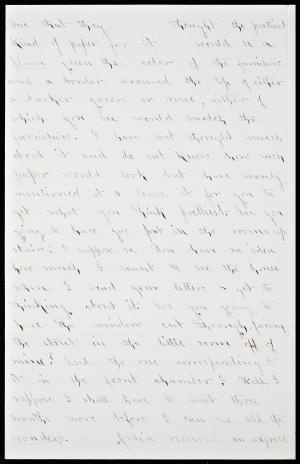 me that they thought the prettiest
kind of paper for it would be a
plain green the color of the furniture
and a border around the top of either
a darker green or roses, either of
which you see would match the
furniture. I have not thought much
about it and do not know how such
paper would look but have merely
mentioned it & leave it for you to
get what you think prettiest. Are you
going to have gas put in the rooms up
stairs? I suppose so. You have no idea
how much I want to see the house
when I read your letters & get to
thinking about it. Are you going to
have the window cut through, facing
the street in the little room off of
mine? And the one corresponding to
it in the front chamber? Well I
suppose I shall have to wait three
months more before I can see all the
wonders. — Julia received an express